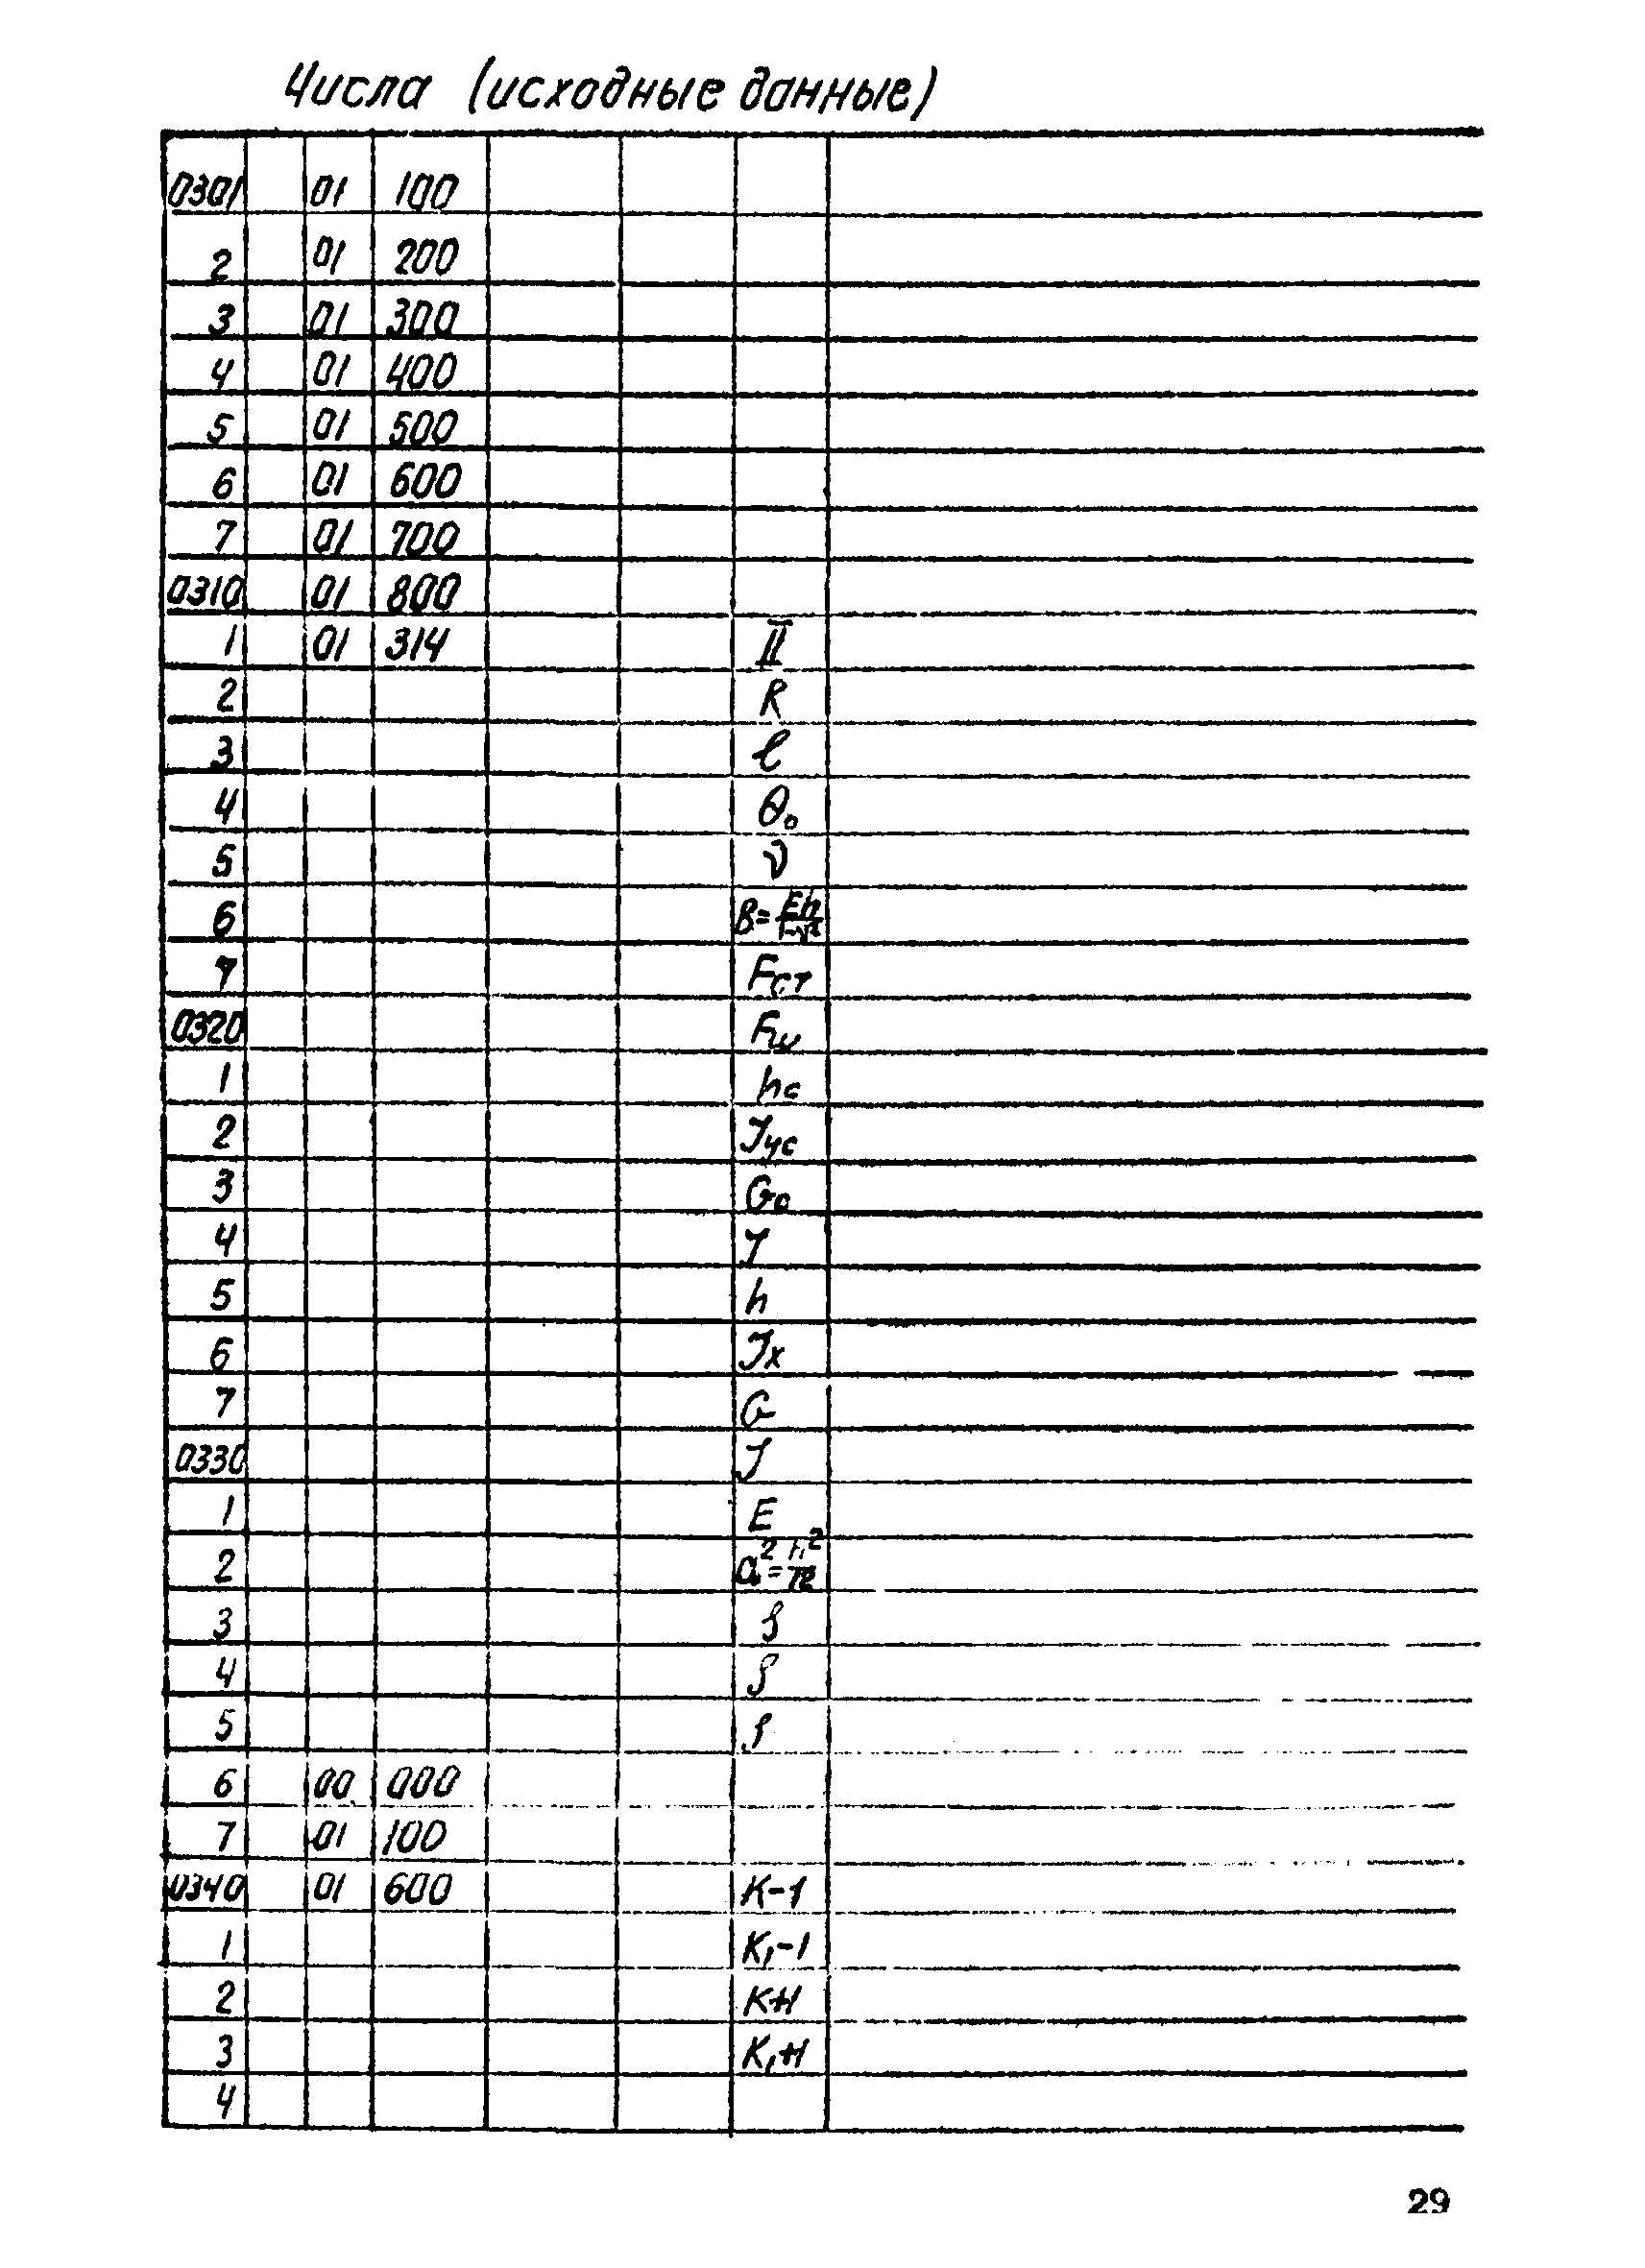 Числа (исходные данные)
0301 01 100
2 01 200
3 01 300
4 01 400
5 01 500
6 01 600
7 01 700
0310 01 800
1 01 314 II
2 R
3 ℓ
4 θ₀
5 ν
6 B = Eh/1-ν²
7 Fст
0320 Fш
1 hc
2 Jyc
3 Gc
4 J
5 h
6 Jx
7 G
0330 J
1 E
2 a² = h²/12
3
4
5
6 00 000
7 01 100
0340 01 600 K-1
1 K₁-1
2 K+1
3 K₁+1
4
29